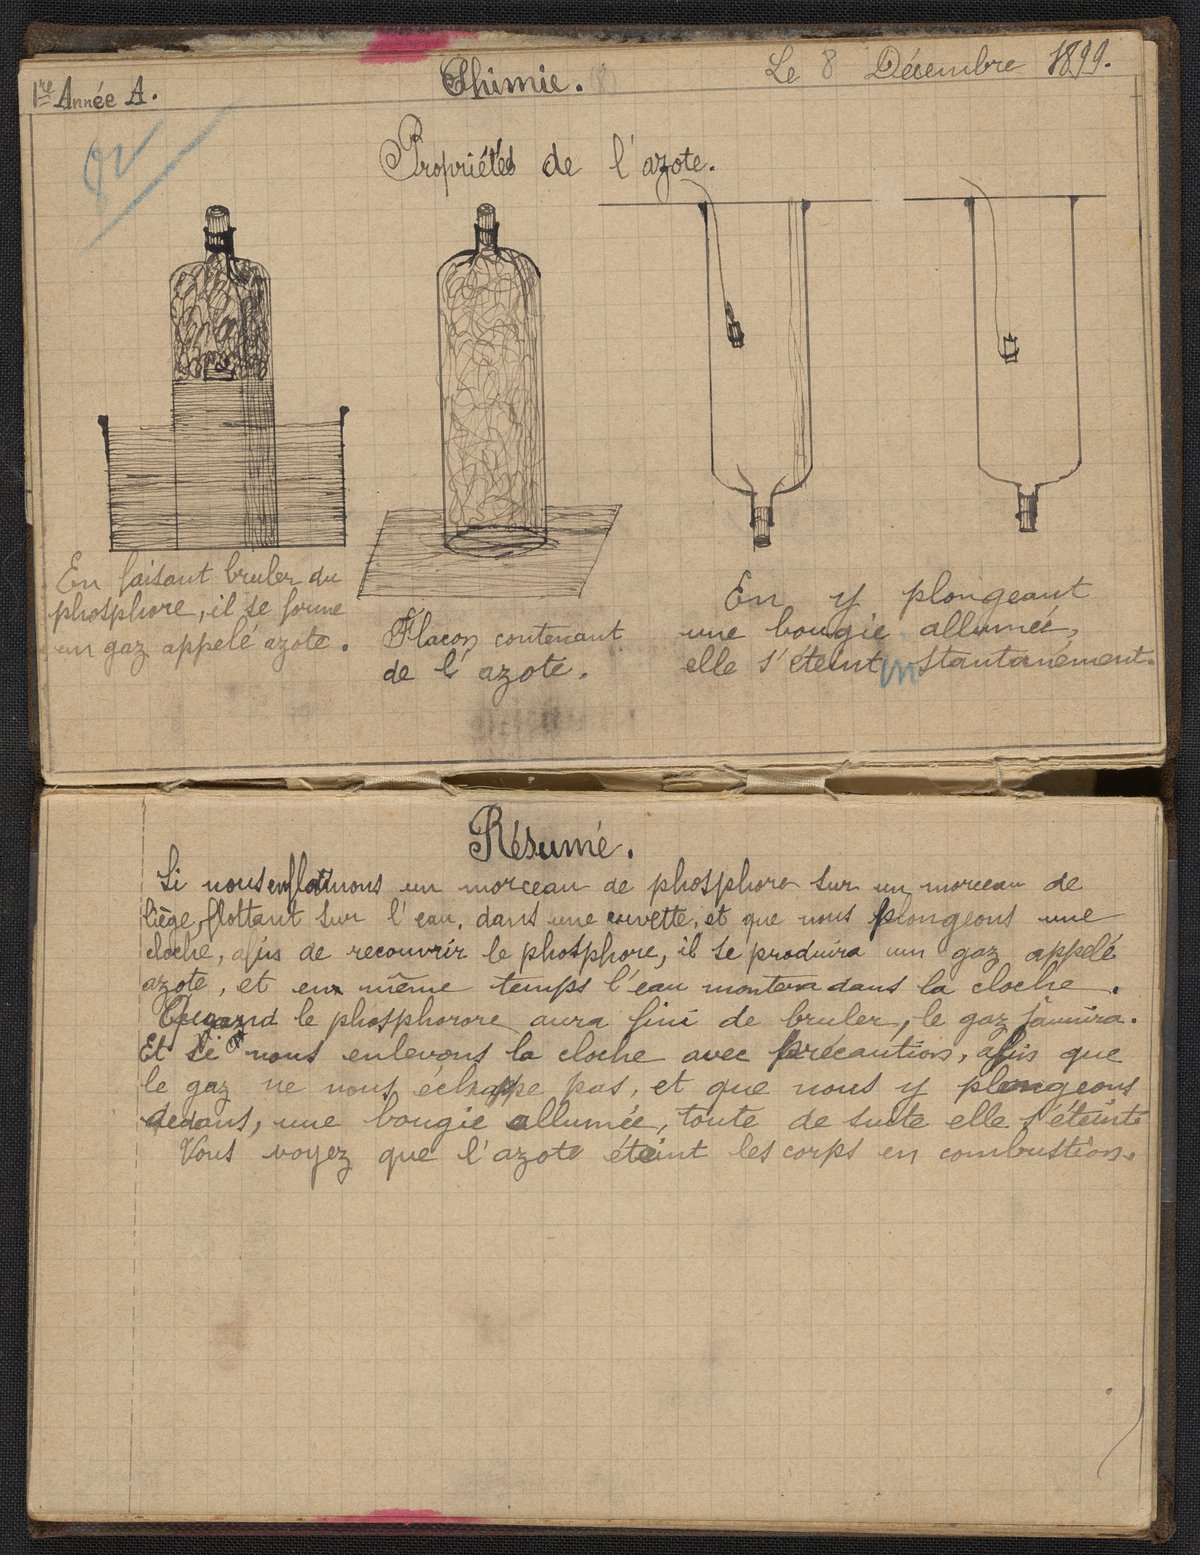 1re Année A.
Chimie.
Le 8 Décembre 1899.
Propriétés de l'azote.
En faisant bruler du
phosphore, il se forme
un gaz appelé azote.
Flacon contenant
de l'azote.
En y plongeant
une bougie allumée,
elle s'éteint instantanément.
Résumé.
Si nous enflammons un morceau de phosphore sur un morceau de
liège flottant sur l'eau, dans une cuvette, et que nous plongeons une
cloche, afin de recouvrir le phosphore, il se produira un gaz appelé
azote, et en même temps l'eau montera dans la cloche.
Quand le phosphorore aura fini de bruler, le gaz jaunira.
Et si nous enlevons la cloche avec précaution, afin que
le gaz ne nous échappe pas, et que nous y plongeons
dedans, une bougie allumée, toute de suite elle s'éteint
Vous voyez que l'azote éteint les corps en combustion.